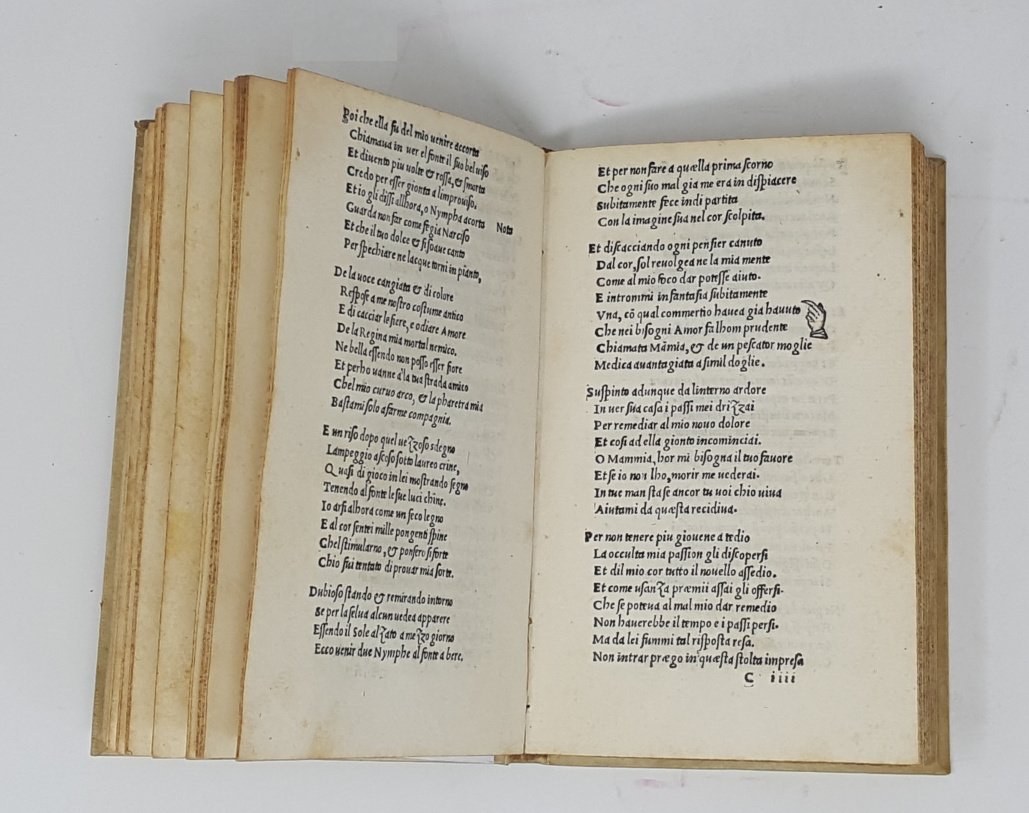 Poi che ella fu del mio uenire accorta
Chiamaua in uer el fonte il suo bel uiso
Et diuento piu uolte & rossa, & smorta
Credo per esser gionta a limprouiso.
Et io gli dissi allhora, o Nympha acorta Nota
Guarda non far come fe gia Narciso
Et che il tuo dolce & si soaue canto
Per spechiare ne lacque torni in pianto,
De la uoce cangiata & di colore
Respose a me nostro costume antico
E di cacciar le fiere, e odiare Amore
De la Regina mia mortal nemico.
Ne bella essendo non posso esser fiore
Et perho uanne a la tua strada amico
Chel mio curuo arco, & la pharetra mia
Bastami solo a farme compagnia.
E un riso dopo quel uezzoso sdegno
Lampeggio ascoso sotto laureo crine,
Quasi di gioco in lei mostrando segno
Tenendo al fonte le sue luci chine.
Io arsi alhora come un seco legno
E al cor sentei mille pongenti spine
Chel stimularno, & ponsero si forte
Chio fui tentato di prouar mia sorte.
Dubioso stando & remirando intorno
Se per la selua alcun uedea apparere
Essendo il Sole alzato a mezo giorno
Ecco uenir due Nymphe al fonte a bere.
Et per non fare a quælla prima scorno
Che ogni suo mal gia me era in dispiacere
Subitamente fece indi partita
Con la imagine sua nel cor scolpita.
Et discacciando ogni pensier canuto
Dal cor, sol reuolgea ne la mia mente
Come al mio foco dar potesse aiuto.
E intrommi in fantasia subitamente
Vna, cõ qual commertio hauea gia hauuto
Che nei bisogni Amor fa lhom prudente
Chiamata Mãmia, & de un pescator moglie
Medica auantagiata a simil doglie.
Suspinto adunque da linterno ardore
In uer sua casa i passi mei drizzai
Per remediar al mio nouo dolore
Et cosi ad ella gionto incominciai.
O Mammia, hor mi bisogna il tuo fauore
Et se io non lho, morir me uederai.
In tue man sta se ancor tu uoi chio uiua
Aiutami da quæsta recidiua.
Per non tenere piu giouene a tedio
La occulta mia passion gli discopersi
Et dil mio cor tutto il nouello assedio.
Et come usanza præmii assai gli offersi.
Che se poteua al mal mio dar remedio
Non hauerebbe il tempo e i passi persi.
Ma da lei summi tal risposta resa.
Non intrar præego in quæsta stolta impresa
C iiii